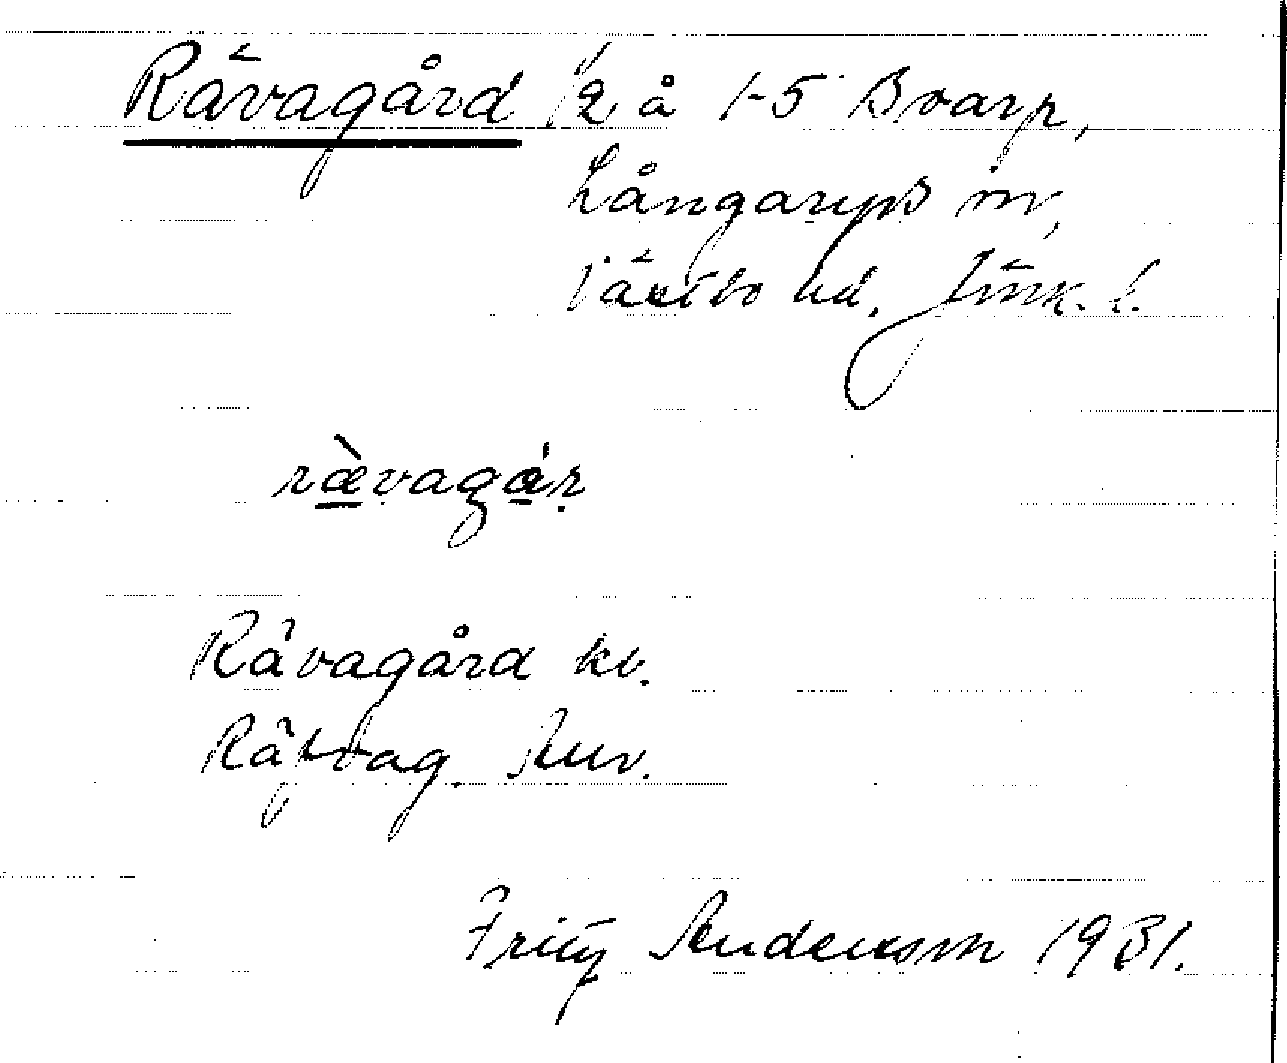 Rävagård 1/2 å 1-5 Boarp,
Långaryds sn,
Västbo hd, Jönk. l.
rævagár
Rävagård kv.
Räfvag.
Fritz Andersson 1931.